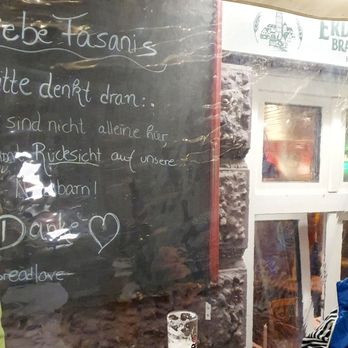 ebe Fasanis
tte denkt dran:.
sind nicht alleine hier,
Rücksicht auf unsere
barn!
Danke ♡
preadlove
ERD
BRA